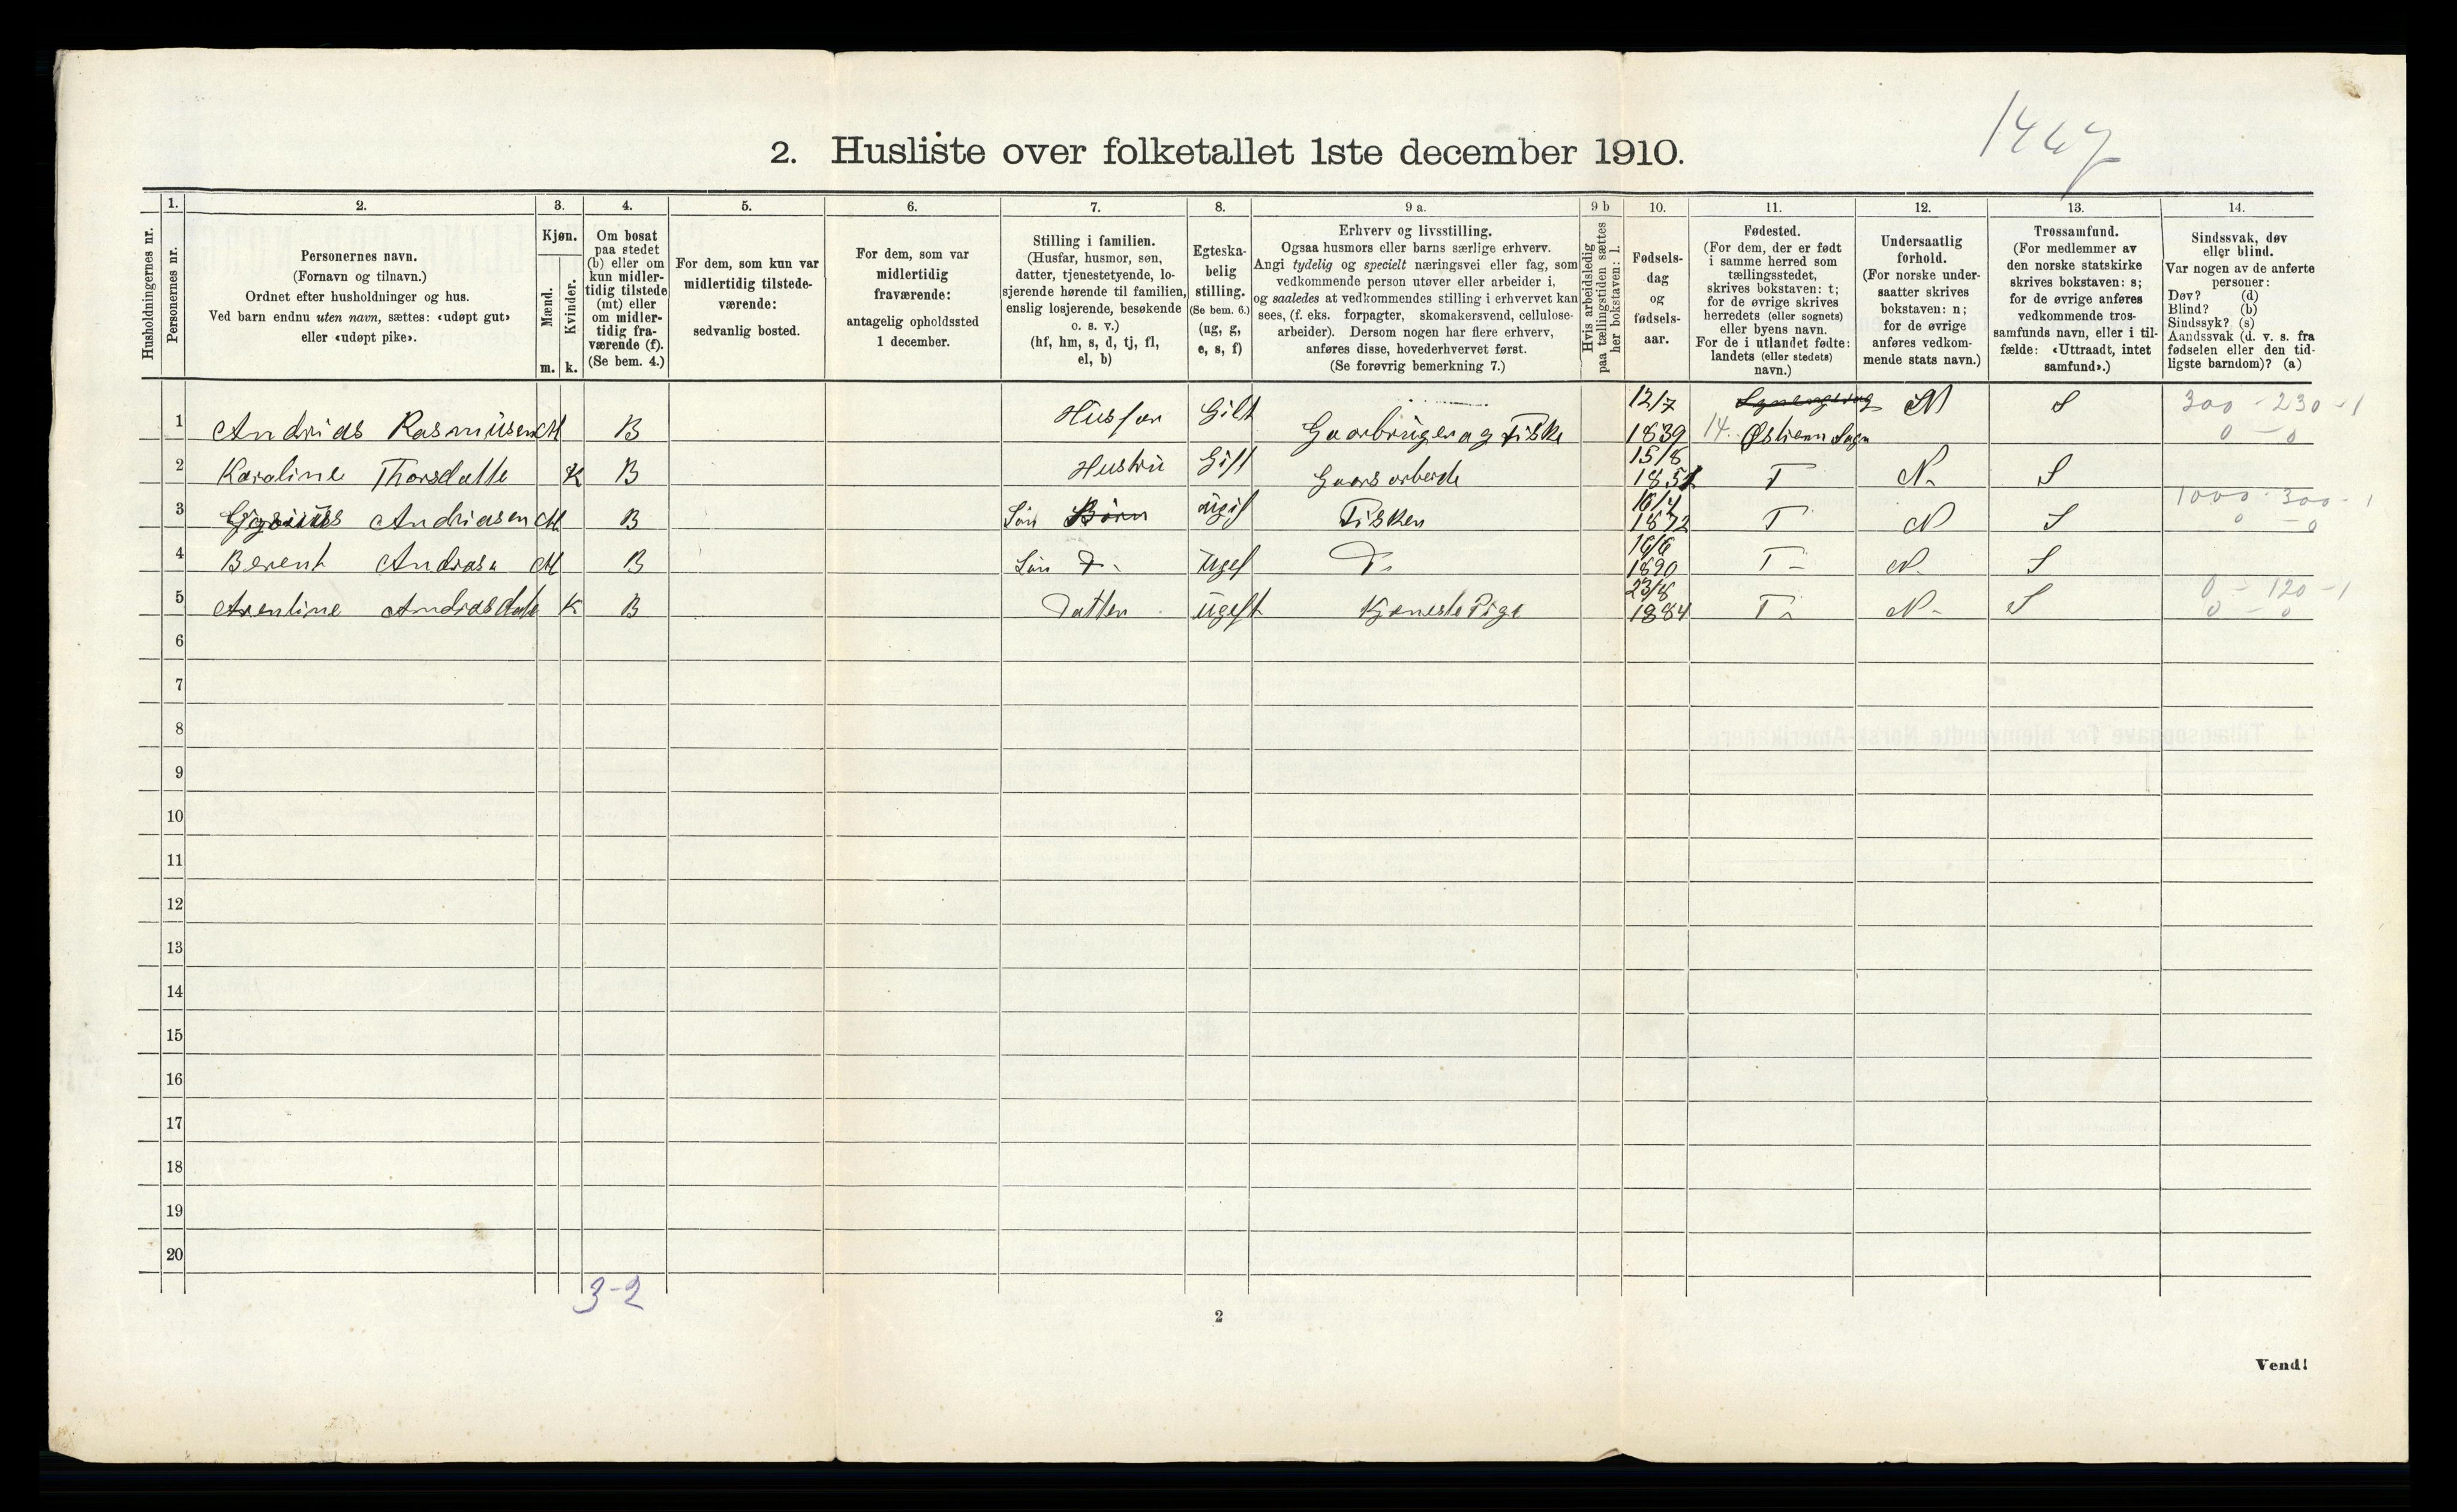 1447
2. Husliste over folketallet 1ste december 1910.
Husholdningernes nr.
1.
Personernes nr.
2.
Personernes navn.
(Fornavn og tilnavn.)
Ordnet efter husholdninger og hus.
Ved barn endnu uten navn, sættes: «udøpt gut»
eller «udøpt pike».
3.
Kjøn.
Mænd.
Kvinder.
m. k.
4.
Om bosat
paa stedet
(b) eller om
kun midler-
tidig tilstede
(mt) eller
om midler-
tidig fra-
værende (f).
(Se bem. 4.)
5.
For dem, som kun var
midlertidig tilstede-
værende:
sedvanlig bosted.
6.
For dem, som var
midlertidig
fraværende:
antagelig opholdssted
1 december.
7.
Stilling i familien.
(Husfar, husmor, søn,
datter, tjenestetyende, lo-
sjerende hørende til familien,
enslig losjerende, besøkende
o. s. v.)
(hf, hm, s, d, tj, fl,
el, b)
8.
Egteska-
belig
stilling.
(Se bem. 6.)
(ug, g,
e, s, f)
9 a.
Erhverv og livsstilling.
Ogsaa husmors eller barns særlige erhverv.
Angi tydelig og specielt næringsvei eller fag, som
vedkommende person utøver eller arbeider i,
og saaledes at vedkommendes stilling i erhvervet kan
sees, (f. eks. forpagter, skomakersvend, cellulose-
arbeider). Dersom nogen har flere erhverv,
anføres disse, hovederhvervet først.
(Se forøvrig bemerkning 7.)
9 b
Hvis arbeidsledig
paa tællingstiden sættes
her bokstaven: l.
10.
Fødsels-
dag
og
fødsels-
aar.
11.
Fødested.
(For dem, der er født
i samme herred som
tællingsstedet,
skrives bokstaven: t;
for de øvrige skrives
herredets (eller sognets)
eller byens navn.
For de i utlandet fødte:
landets (eller stedets)
navn.)
12.
Undersaatlig
forhold.
(For norske under-
saatter skrives
bokstaven: n;
for de øvrige
anføres vedkom-
mende stats navn.)
13.
Trossamfund.
(For medlemmer av
den norske statskirke
skrives bokstaven: s;
for de øvrige anføres
vedkommende tros-
samfunds navn, eller i til-
fælde: «Uttraadt, intet
samfund».)
14.
Sindssvak, døv
eller blind.
Var nogen av de anførte
personer:
Døv? (d)
Blind? (b)
Sindssyk? (s)
Aandssvak (d. v. s. fra
fødselen eller den tid-
ligste barndom)? (a)
1 Andrias Rasmüsen M B Husfar Gift Gaarbrüger og Fiske 12/7 1839 14. Østienn Sogn N S 300 - 230 - 1 0 - 0
2 Karoline Thorsdatte K B Hustrü Gift Gaars arbeide 15/8 1851 T N. S
3 Andriasen M B Sön Börn ügif Fisker 16/4 1872 T N S 1000 - 300 - 1 0 - 0
4 Berent Andrasn M B Sön D. Ugif D. 16/6 1890 T - N. S
5 Arentine Andriasdate K B Datter ügift Kjæneste Pige 23/8 1884 T - N - S 0 - 120 - 1 0 - 0
6
7
8
9
10
11
12
13
14
15
16
17
18
19
20
3-2
2
Vend!